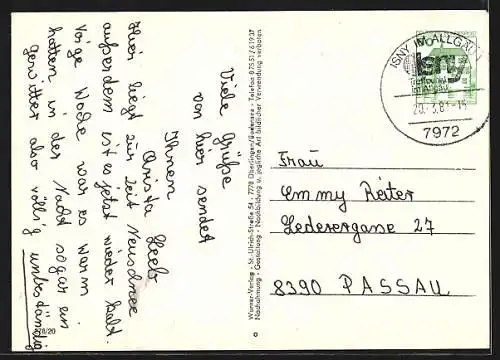 Viele Grüße
von hier sendet
Ihnen
Christa Loeb
Hier liegt zur Zeit Neuschnee
außerdem ist es jetzt wieder kalt.
Vorige Woche war es warm
hatten in der Nacht sogar ein
gewitter also völlig unbeständig
Wiener-Verlag · St.-Ulrich-Straße 54 · 7770 Überlingen/Bodensee · Telefon 07551/61937
Nachahmung · Gestaltung · Nachbildung u. jegliche Art bildlicher Verwendung verboten
ISNY IM ALLGÄU
Isny
7972
Frau
Emmy Reiter
Lederergasse 27
8390 PASSAU